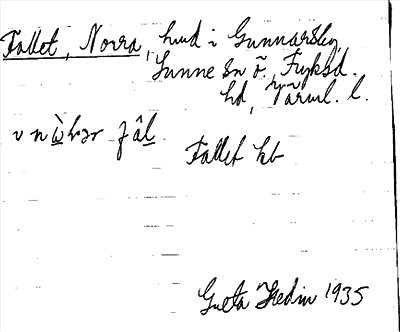 Fallet, Norra, hmd i Gunnarsby,
Sunne sn Ö. Fryksd.
hd, Värml. l.
Fallet hb
Greta Hedin 1935